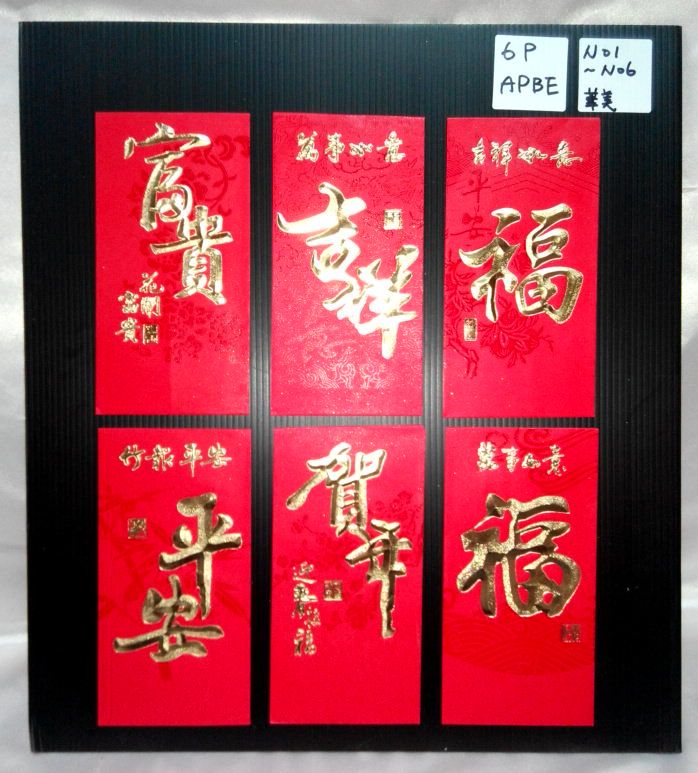 6P
APBE
NO1
~NO6
華美
富貴
花開
富貴
萬事如意
吉祥
吉祥如意
平安
福
竹報平安
平安
賀年
迎春納福
萬事如意
福